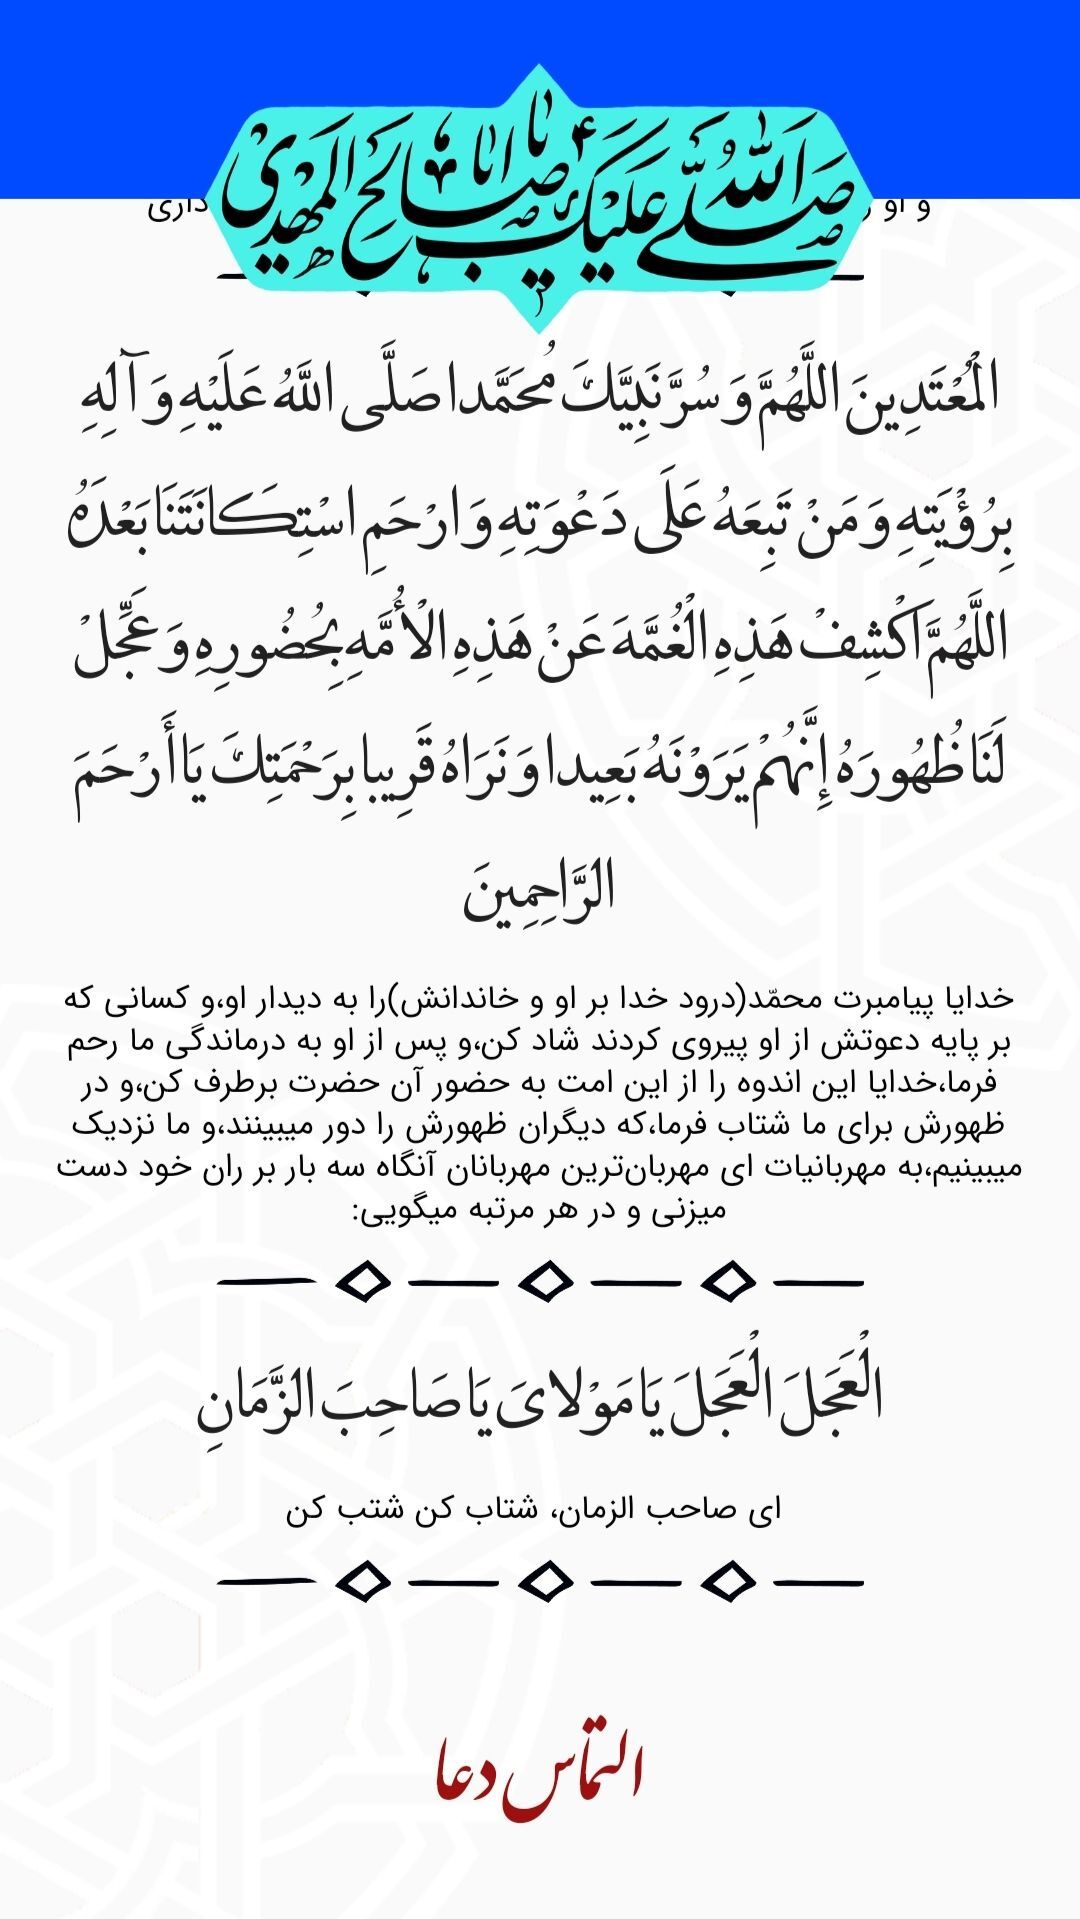 صَلَّی اللّٰهُ عَلَیْکَ یا ابا صالِحَ الْمَهْدی
و او
داری
الْمُعْتَدِينَ اللَّهُمَّ وَ سُرَّ نَبِيَّكَ مُحَمَّدا صَلَّى اللَّهُ عَلَيْهِ وَ آلِهِ
بِرُؤْيَتِهِ وَ مَنْ تَبِعَهُ عَلَى دَعْوَتِهِ وَ ارْحَمِ اسْتِكَانَتَنَا بَعْدَهُ
اللَّهُمَّ اكْشِفْ هَذِهِ الْغُمَّهَ عَنْ هَذِهِ الْأُمَّهِ بِحُضُورِهِ وَ عَجِّلْ
لَنَا ظُهُورَهُ إِنَّهُمْ يَرَوْنَهُ بَعِيدا وَ نَرَاهُ قَرِيبا بِرَحْمَتِكَ يَا أَرْحَمَ
الرَّاحِمِينَ
خدایا پیامبرت محمّد(درود خدا بر او و خاندانش)را به دیدار او،و کسانی که
بر پایه دعوتش از او پیروی کردند شاد کن،و پس از او به درماندگی ما رحم
فرما،خدایا این اندوه را از این امت به حضور آن حضرت برطرف کن،و در
ظهورش برای ما شتاب فرما،که دیگران ظهورش را دور میبینند،و ما نزدیک
میبینیم،به مهربانیات ای مهربان‌ترین مهربانان آنگاه سه بار بر ران خود دست
میزنی و در هر مرتبه میگویی:
الْعَجَلَ الْعَجَلَ يَا مَوْلاىَ يَا صَاحِبَ الزَّمَانِ
ای صاحب الزمان، شتاب کن شتب کن
التماس دعا